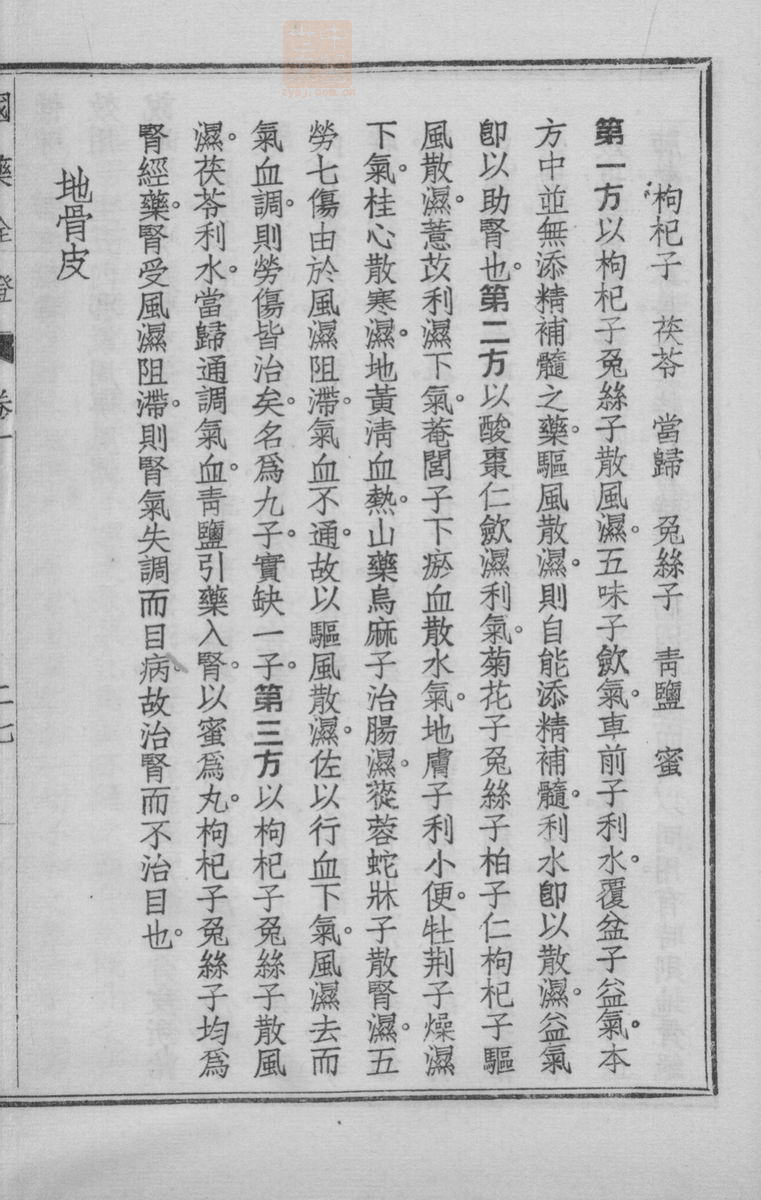 枸杞子　茯苓　當歸　兔絲子　靑鹽　蜜
第一方以枸杞子兔絲子散風濕。五味子歛氣。車前子利水。覆盆子益氣。本
方中並無添精補髓之藥。驅風散濕。則自能添精補髓。利水卽以散濕。益氣
卽以助腎也。第二方以酸棗仁歛濕利氣。菊花子兔絲子柏子仁枸杞子驅
風散濕。薏苡利濕下氣。菴閭子下瘀血散水氣。地膚子利小便。牡荆子燥濕
下氣。桂心散寒濕。地黃淸血熱。山藥烏麻子治腸濕。蓯蓉蛇牀子散腎濕。五
勞七傷由於風濕阻滯。氣血不通。故以驅風散濕。佐以行血下氣。風濕去而
氣血調。則勞傷皆治矣。名爲九子。實缺一子。第三方以枸杞子兔絲子散風
濕。茯苓利水。當歸通調氣血。靑鹽引藥入腎。以蜜爲丸。枸杞子兔絲子均爲
腎經藥。腎受風濕阻滯。則腎氣失調而目病。故治腎而不治目也。
地骨皮
國藥詮證 卷一 二七